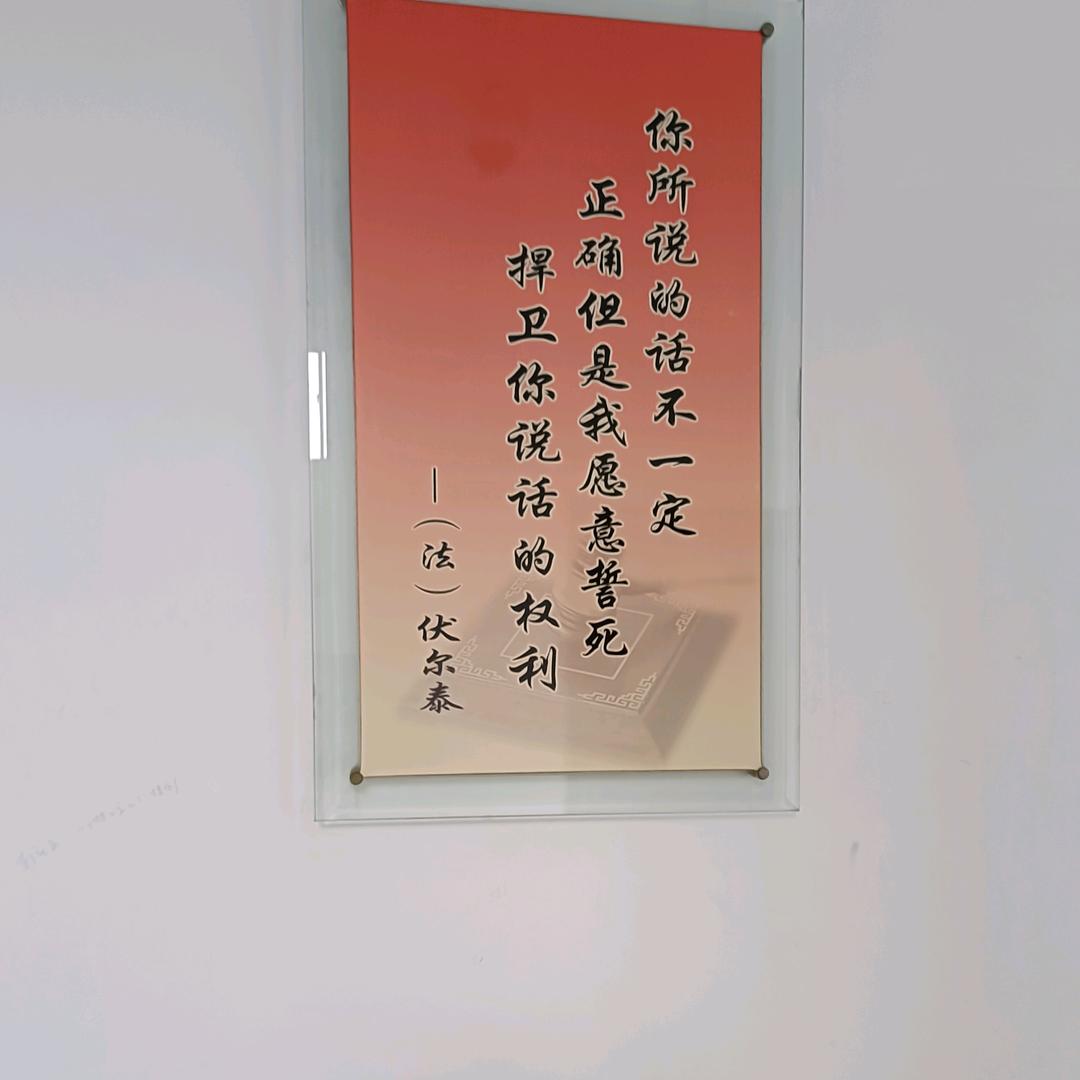 你所说的话不一定
正确但是我愿意誓死
捍卫你说话的权利
—（法）伏尔泰